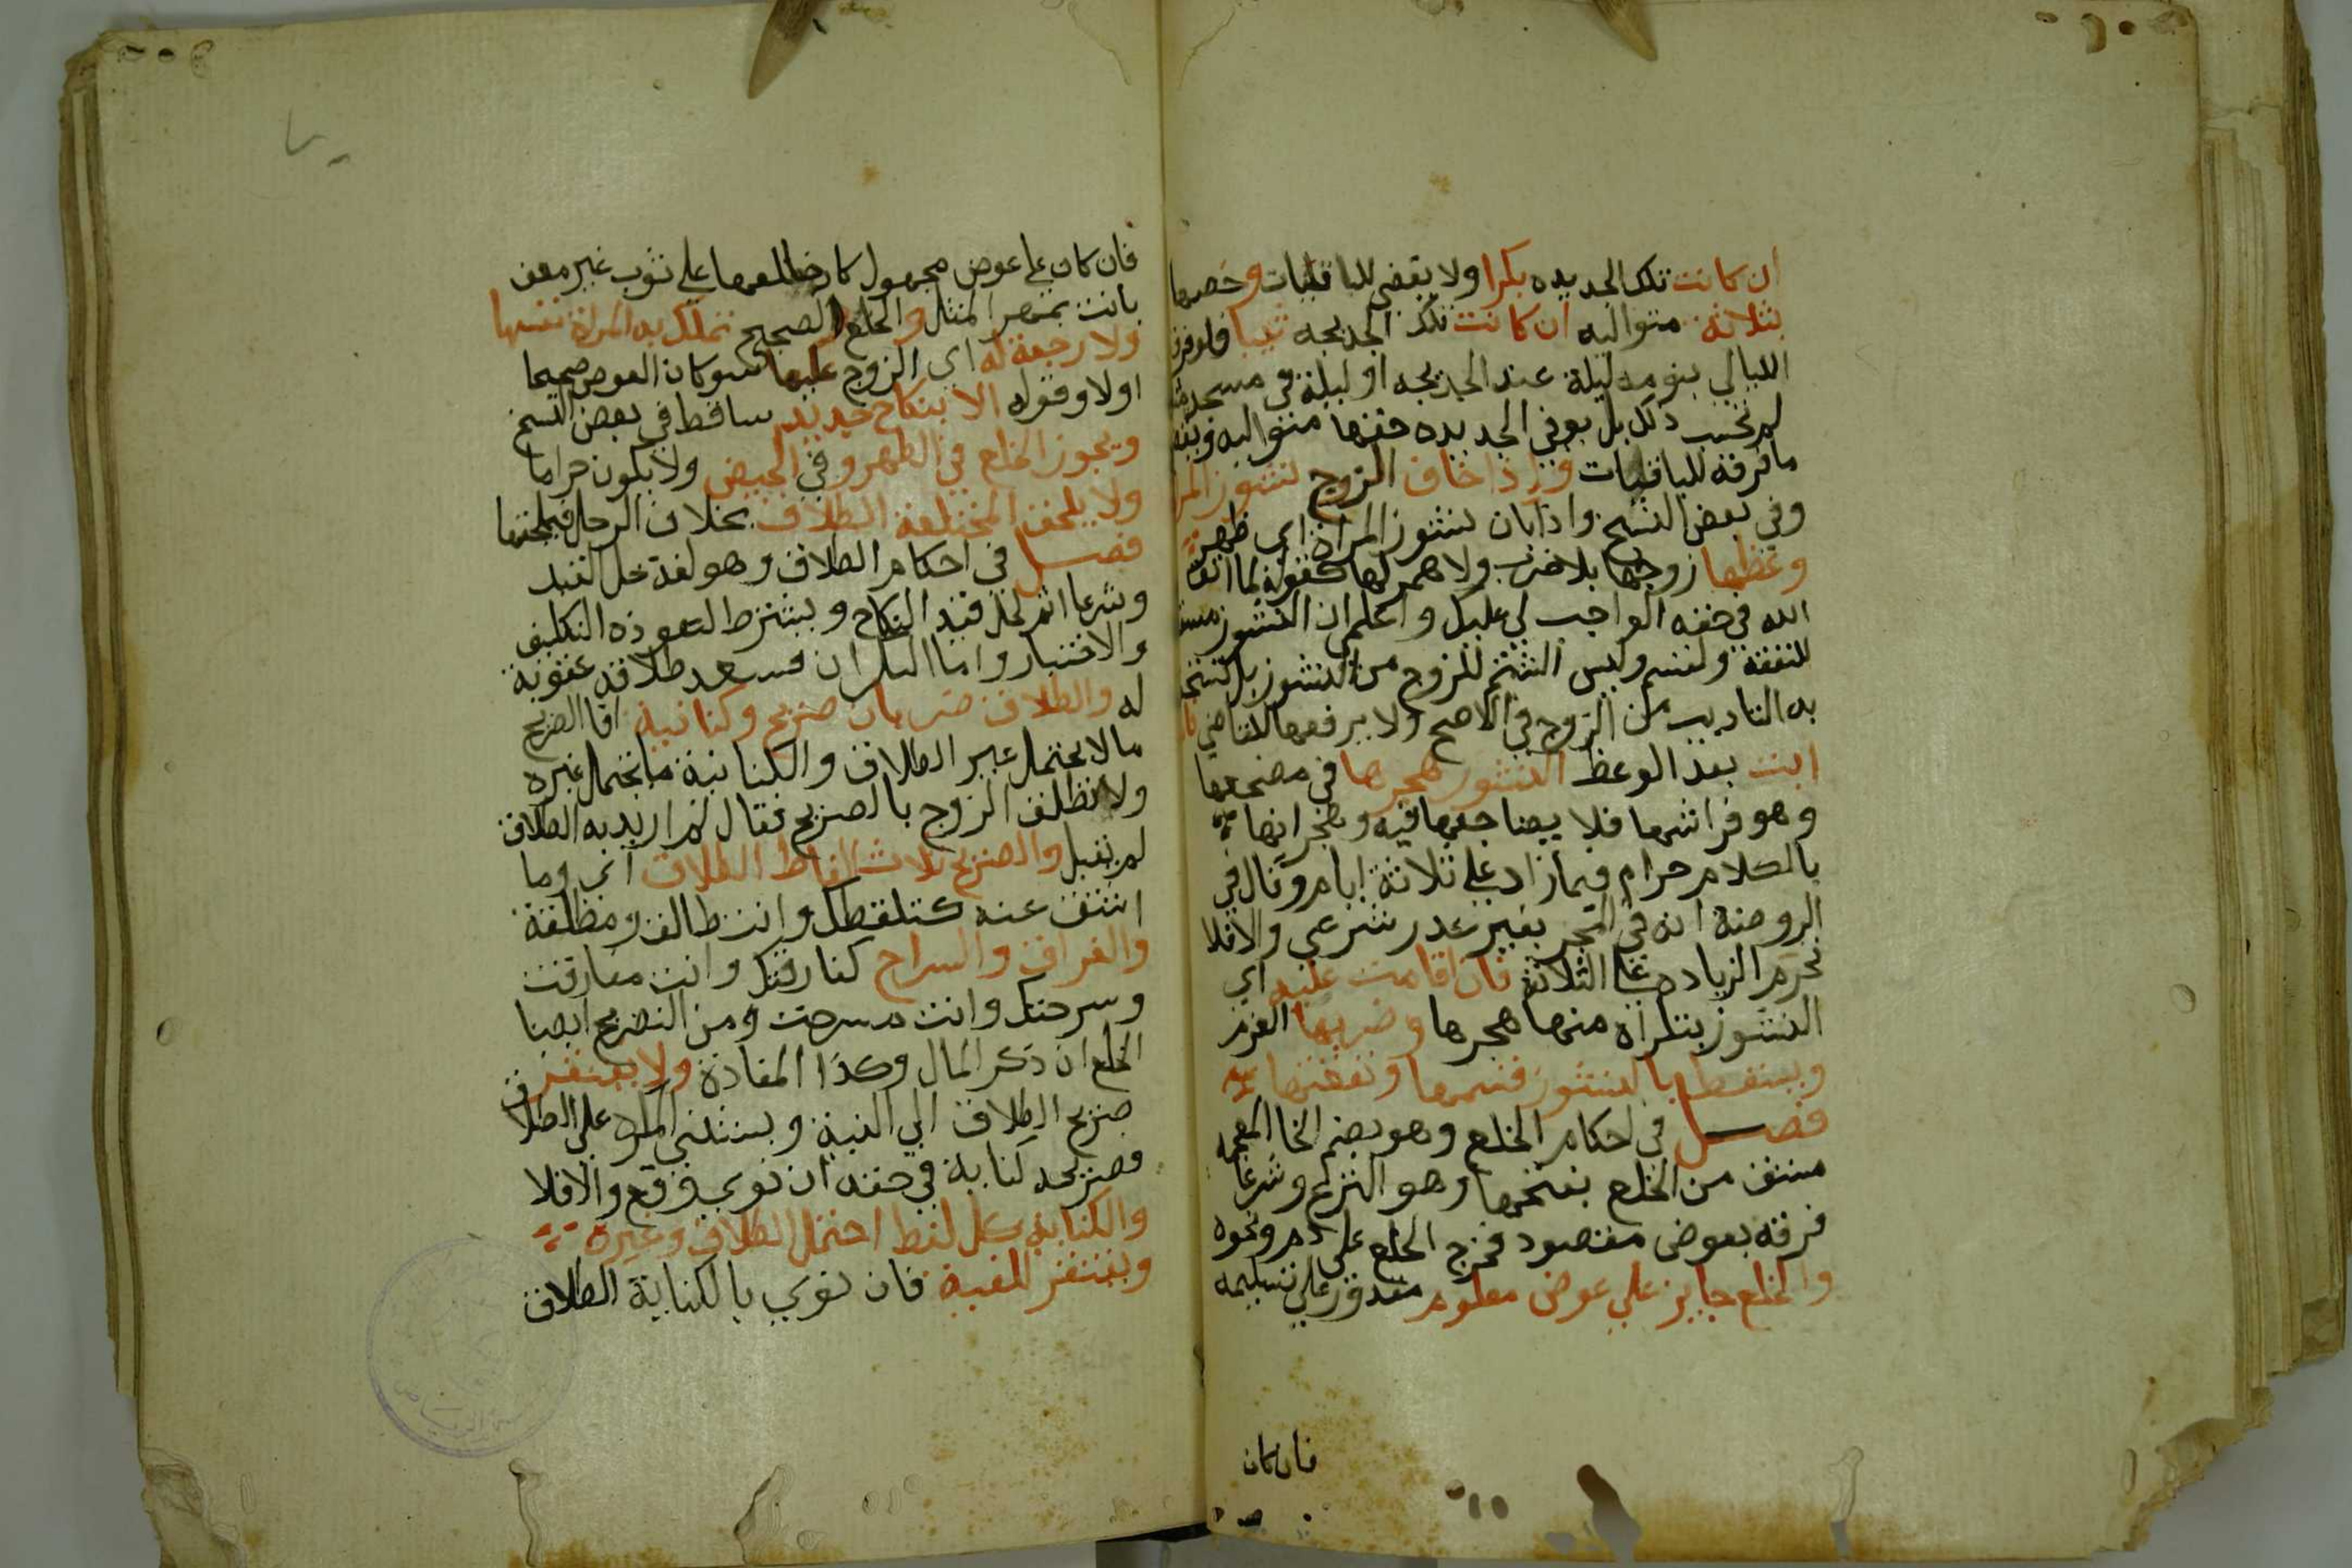 ان كانت تلك الجديده بكرا ولا يقضي للباقيات وخصها
بثلاثة متواليه ان كانت تلك الجديده ثيبا فلو فرق
الليالي بنومه ليلة عند الجديده او ليلة في مسجد
لم تحسب ذلك بل يوفي الجديده حقها متواليه ويقضي
ما فرقه للباقيات واذا خاف الزوج نشوز المراة
وفي بعض النسخ واذا بان نشوز المراة اي ظهر
وعظها زوجها بلا ضرب ولا هجر لها كقوله لها اتق
الله في حقه الواجب لي عليك واعلم ان النشوز مسقط
للنفقة والقسم وليس الشتم للزوج من النشوز بل تستحق
به التاديب من الزوج في الاصح ولا يرفعها للقاضي فان
ابت بعد الوعظ النشوز هجرها في مضجعها
وهو فراشها فلا يضاجعها فيه وهجرانها
بالكلام حرام فيما زاد علي ثلاثة ايام وقال في
الروضة انه في الهجر بغير عذر شرعي والا فلا
تحرم الزيادة علي الثلاثة فان اقامت عليه اي
النشوز بتكراه منها هجرها وضربها
ويسقط بالنشوز قسمها ونفقتها
فصل في احكام الخلع وهو بضم الخا المعجمه
مشتق من الخلع بفتحها وهو النزع وشرعا
فرقه بعوض مقصود فخرج الخلع علي دم ونحوه
والخلع جايز علي عوض معلوم مقدور علي تسليمه
فان كان
فان كان علي عوض مجهول كان خالعها علي ثوب غير معين
بانت بمهر المثل والخلع الصحيح تملك به المراة نفسها
ولا رجعة له اي الزوج عليها سو كان العوض صحيحا
اولا وقوله الا بنكاح جديد ساقط في بعض النسخ
ويجوز الخلع في الطهر وفي الحيض ولا يكون حراما
ولا يلحق المختلعة الطلاق بخلاف الرجل فيلحقها
فصل في احكام الطلاق وهو لغة حل القيد
وشرعا اسم لحل قيد النكاح ويشترط لنفوذه التكليف
والاختيار واما السكران فينفد طلاقه عقوبة
له والطلاق ضربان صريح وكناية اما الصريح
ما لا يحتمل غير الطلاق والكناية ما تحتمل غيره
ولو تلفظ الزوج بالصريح فقال لم اريد به الطلاق
لم يقبل والصريح ثلاث الفاظ الطلاق اي وما
اشتق عنه كتلقطك وانت طالق ومطلقة
والفراق والسراح كفارقتك وانت مفارقت
وسرحتك وانت مسرحت ومن الصريح ايضا
الخلع ان ذكر المال وكذا المفاداة ولا يفتقر
صريح الطلاق الي النية ويستثني المكره علي الطلاق
فصريحه كناية في حقه ان نوي وقع والا فلا
والكناية كل لفظ احتمل الطلاق وغيره
ويفتقر للنية فان نوي بالكناية الطلاق